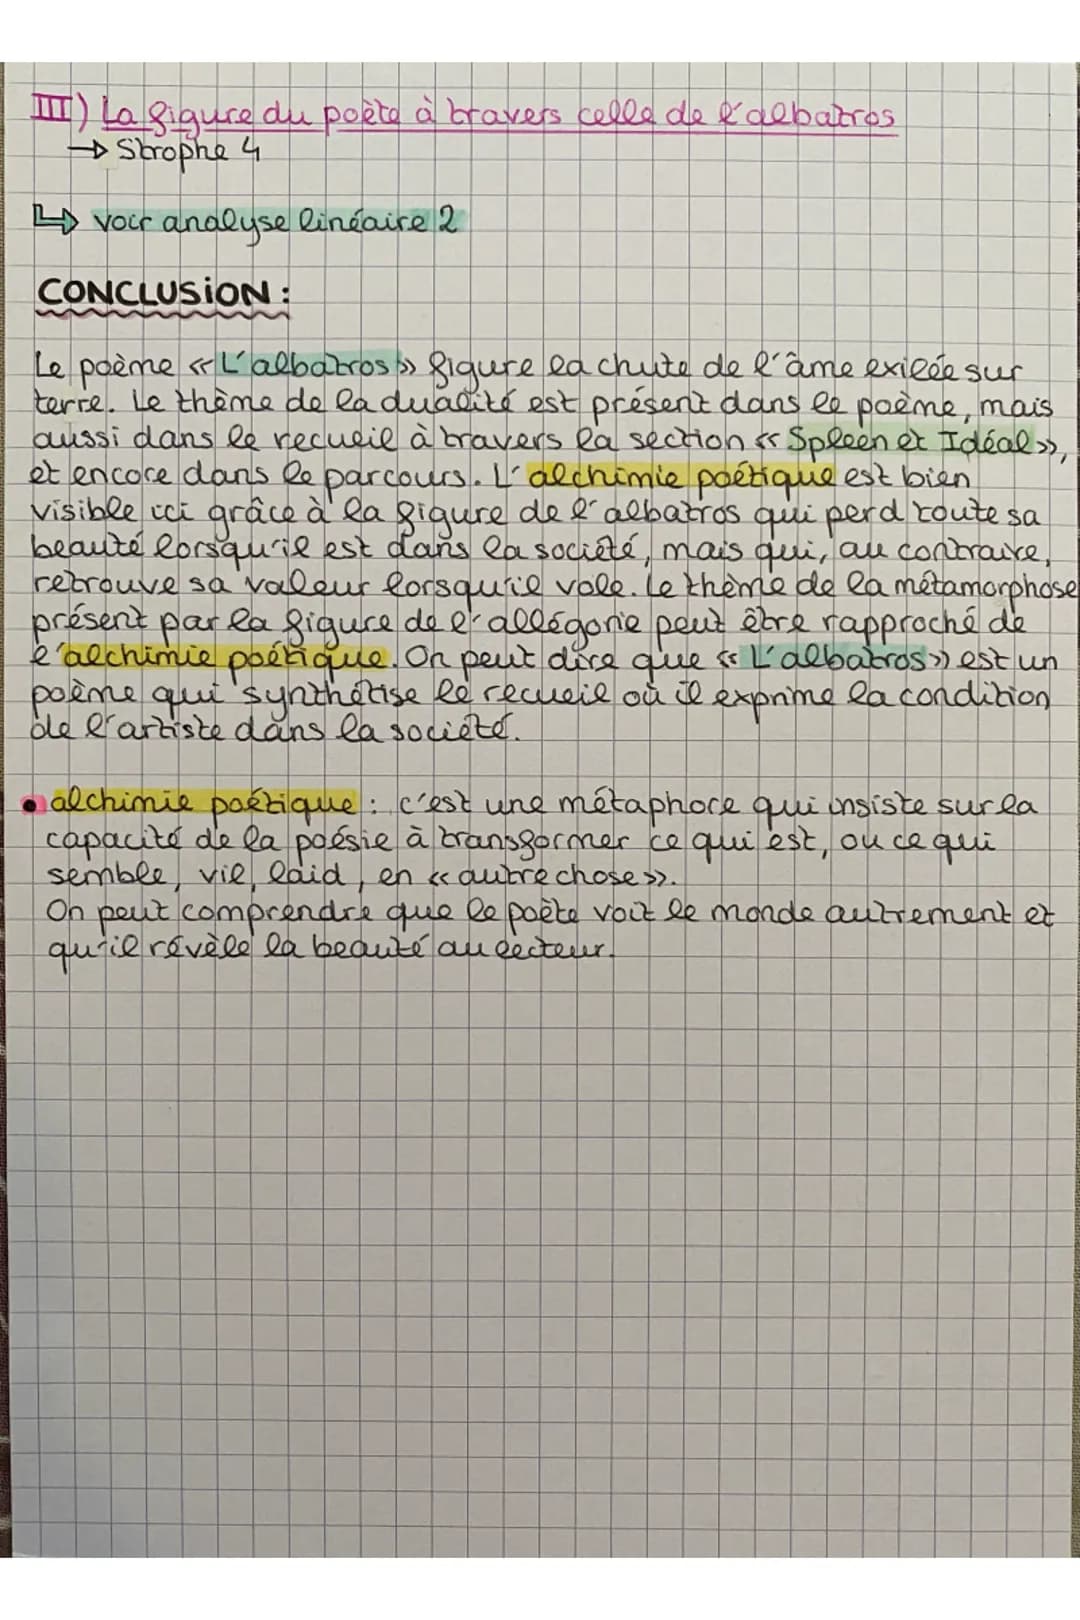 III) La figure du poète à travers celle de l'albatros
→ Strophe 4
↳ voir analyse linéaire 2
CONCLUSION :
Le poème « L'albatros » figure la chute de l'âme exilée sur
terre. Le thème de la dualité est présent dans le poème, mais
aussi dans le recueil à travers la section « Spleen et Idéal »,
et encore dans le parcours. L'alchimie poétique est bien
visible ici grâce à la figure de l'albatros qui perd toute sa
beauté lorsqu'il est dans la société, mais qui, au contraire,
retrouve sa valeur lorsqu'il vole. Le thème de la métamorphose
présent par la figure de l'allégorie peut être rapproché de
l'alchimie poétique. On peut dire que « L'albatros » est un
poème qui synthétise le recueil où il exprime la condition
de l'artiste dans la société.
• alchimie poétique : c'est une métaphore qui insiste sur la
capacité de la poésie à transformer ce qui est, ou ce qui
semble, vil, laid, en « autre chose ».
On peut comprendre que le poète voit le monde autrement et
qu'il révèle la beauté au lecteur.